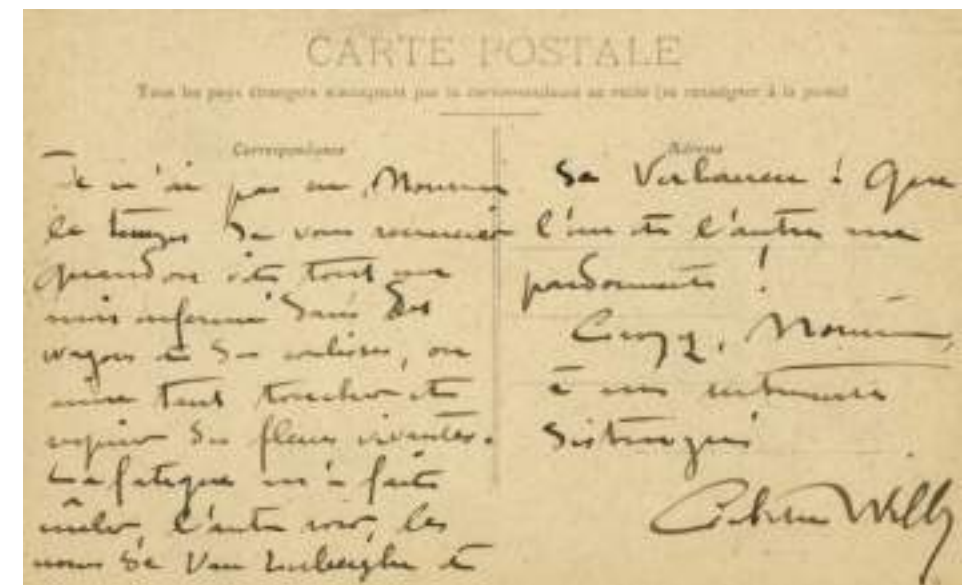 CARTE POSTALE
Tous les pays étrangers n'acceptent pas la correspondance au recto (se renseigner à la poste)
Correspondance
Je n'ai pas eu, Monsieur
le temps de vous remercier
quand on a été tout un
mois enfermé dans des
wagons et des coulisses, on
aime tant toucher et
respirer des fleurs vivantes.
La fatigue m'a fait
mêler, l'autre soir, les
noms de Van et
Adresse
de Verhaeren ! Que
l'un et l'autre me
pardonnent !
Croyez, Monsieur,
à mes sentiments
distingués
Colette Willy